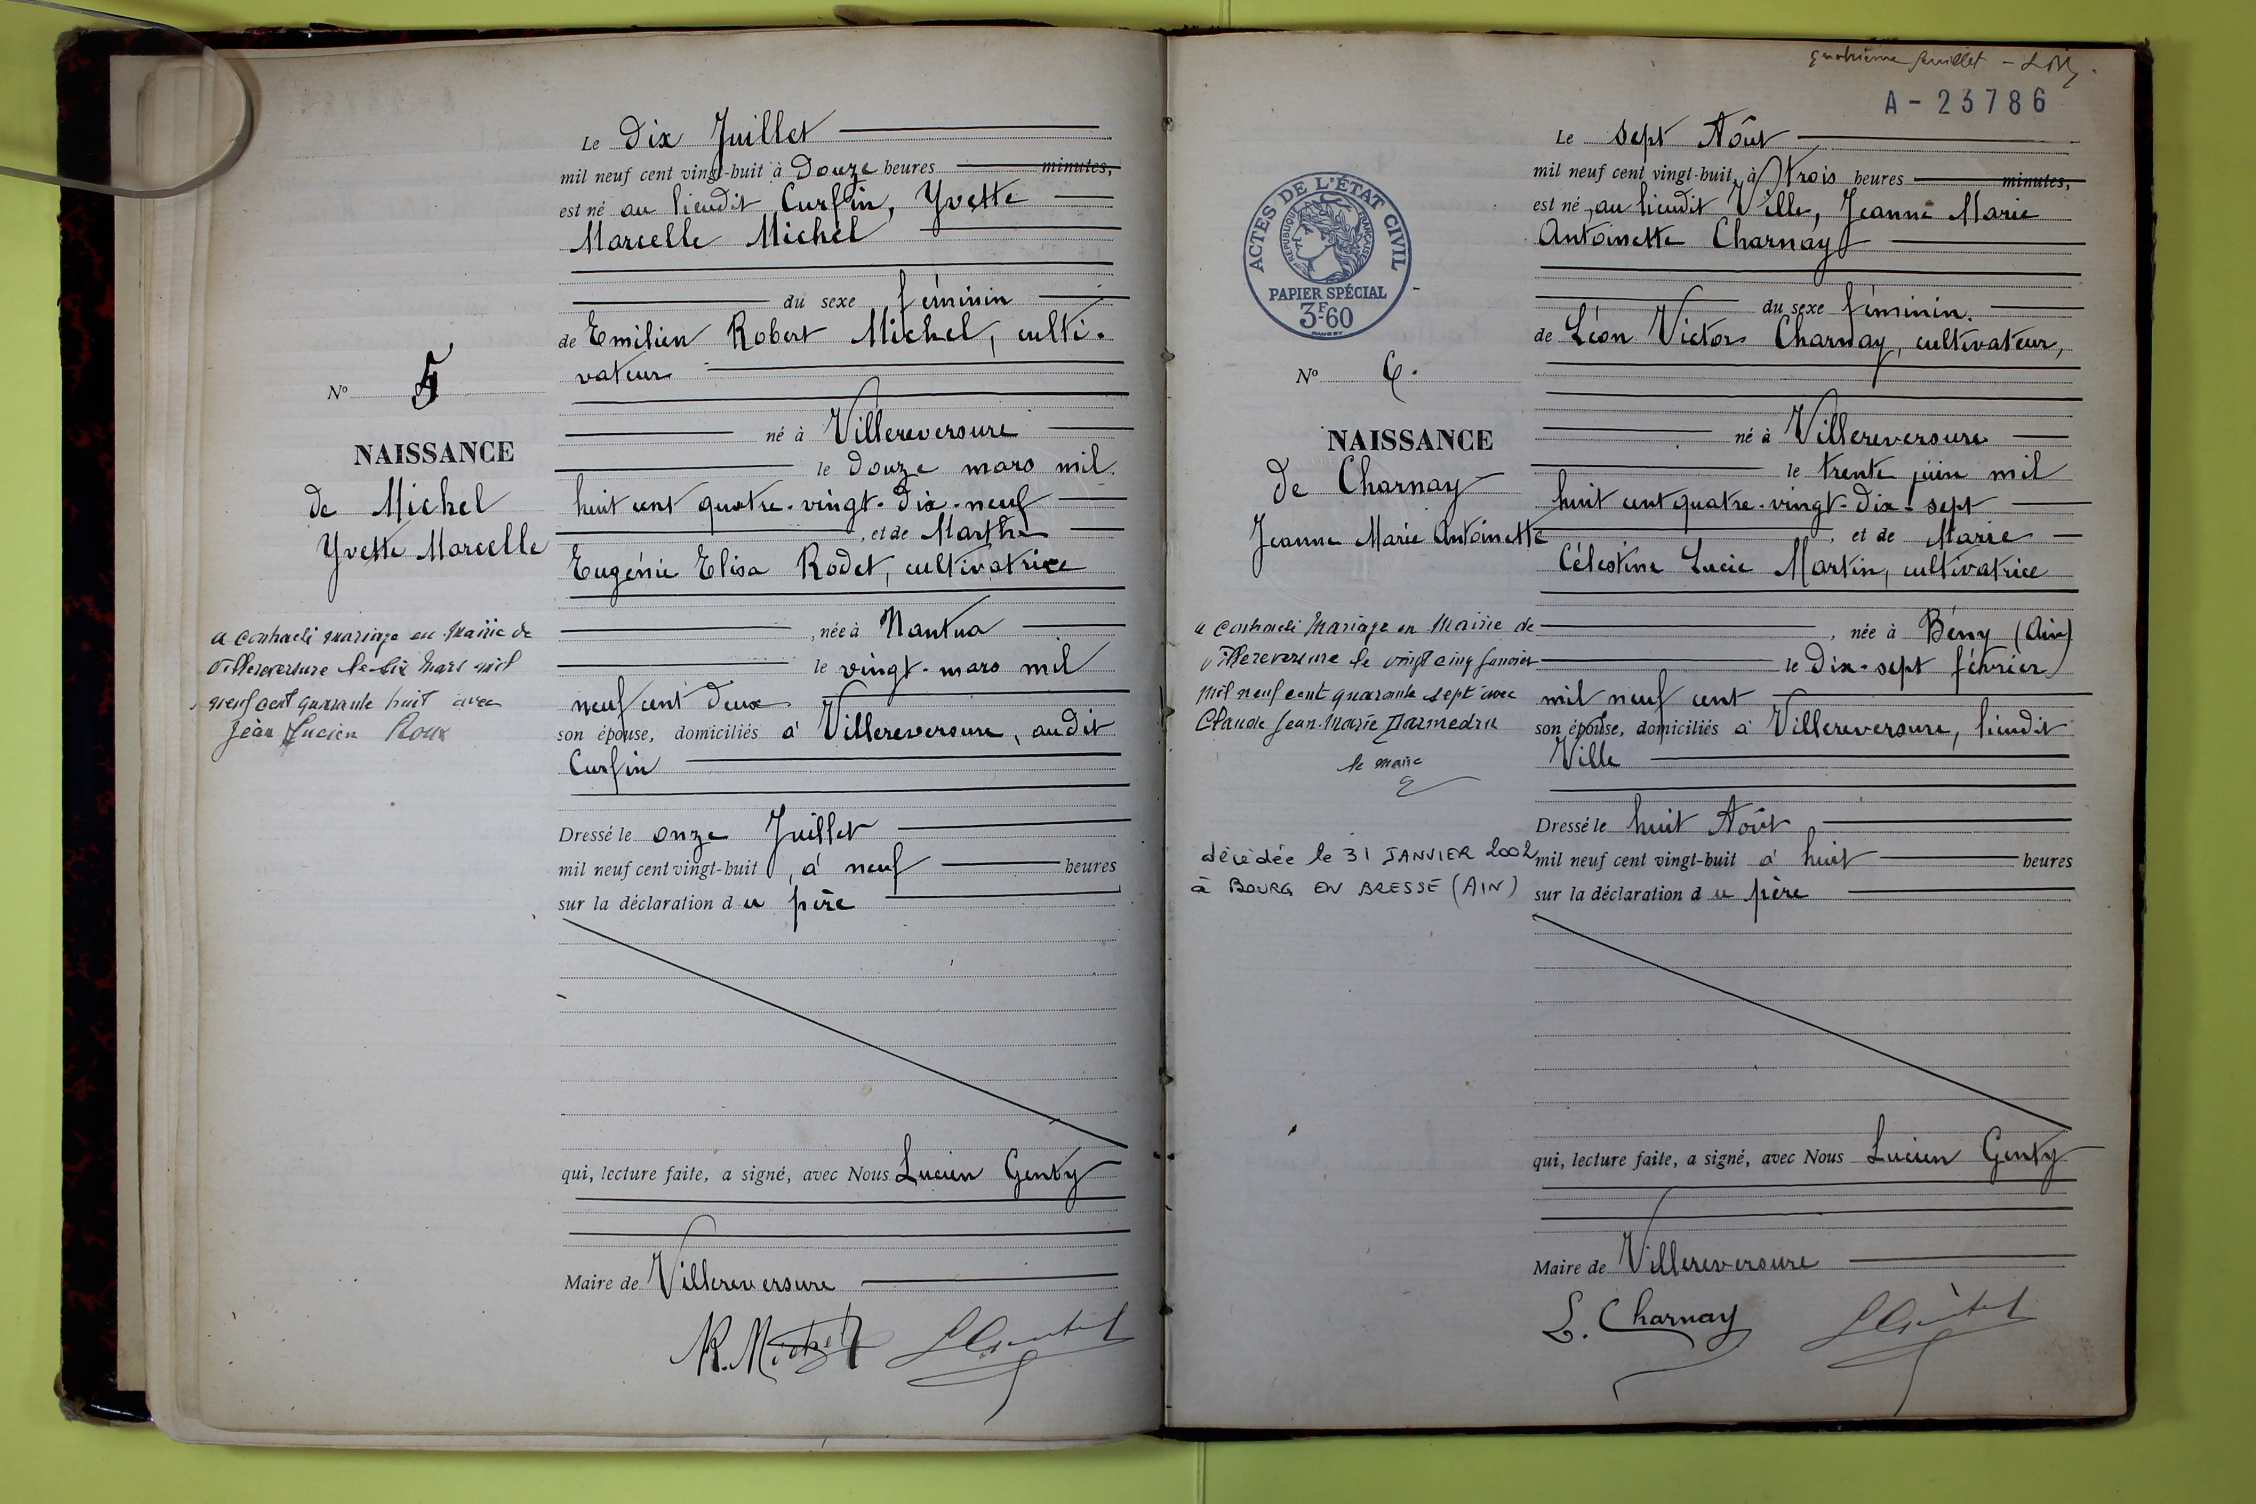 Le dix Juillet
mil neuf cent vingt-huit à Douze heures minutes,
est né au lieudit Curfin, Yvette
Marcelle Michel
du sexe féminin
de Emilien Robert Michel, culti-
vateur
né à Villereversure
le douze mars mil
huit cent quatre-vingt-dix-neuf
, et de Marthe
Eugénie Elisa Rodet, cultivatrice
, née à Nantua
le vingt-mars mil
neuf cent deux
son épouse, domiciliés à Villereversure, audit
Curfin
Dressé le onze Juillet
mil neuf cent vingt-huit, à neuf heures
sur la déclaration du père
qui, lecture faite, a signé, avec Nous Lucien Genty
Maire de Villereversure
R. Michel
No 5
NAISSANCE
de Michel
Yvette Marcelle
a contracté mariage en Mairie de
Villereversure le six Mars mil
neuf cent quarante huit avec
Jean Lucien Roux
quatrième feuillet
A - 23786
Le sept Août
mil neuf cent vingt-huit, à trois heures minutes,
est né au lieudit Ville, Jeanne Marie
Antoinette Charnay
du sexe féminin.
de Léon Victor Charnay, cultivateur,
né à Villereversure
le trente juin mil
huit cent quatre-vingt-dix-sept
, et de Marie
Célestine Lucie Martin, cultivatrice
, née à Bény (Ain)
le dix-sept février
mil neuf cent
son épouse, domiciliés à Villereversure, lieudit
Ville
Dressé le huit Août
mil neuf cent vingt-huit à huit heures
sur la déclaration du père
qui, lecture faite, a signé, avec Nous Lucien Genty
Maire de Villereversure
L. Charnay
ACTES DE L'ÉTAT CIVIL
RÉPUBLIQUE FRANÇAISE
PAPIER SPÉCIAL
3F-60
No 6.
NAISSANCE
de Charnay
Jeanne Marie Antoinette
a contracté Mariage en Mairie de
Villereversure le vingt cinq Janvier
mil neuf cent quarante sept avec
Claude Jean-Marie Darmedru
le maire
décédée le 31 JANVIER 2002
à BOURG EN BRESSE (AIN)